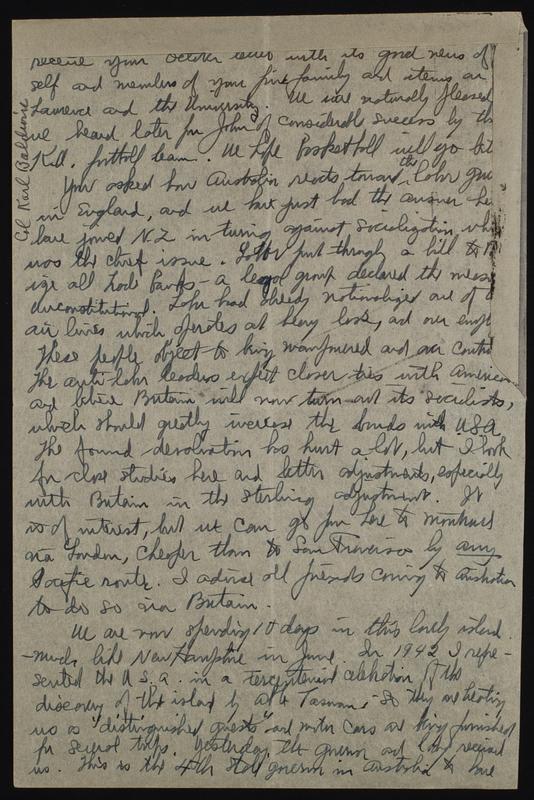 receive your October letter with its good news of
self and members of your fine family and items on
Lawrence and the University. We were naturally pleased
we heard later fm John of considerable success by the
football team. We hope Basketball will go
You asked how Australia reacts toward the Labor
in England, and we have just had the answer
have joined N.Z. in turning against Socialization,
was the chief issue. Labor put through a bill to
ize all Banks - a legal group declared the
unconstitutional. Labor had already nationalized one of
air lines which operates at heavy loss, and over
These people object to being and over
The anti-labor leaders expect closer ties with America
and believe Britain will now turn out its socialists,
which should greatly increase the bonds with USA
The pound devaluation has hurt a lot, but I look
for close studies here and better adjustments, especially
with Britain in the Sterling adjustment. It
is of interest, but we can go fm here to Montreal
via London, cheaper than to San Francisco by any
Pacific route. I advise all friends coming to Australia
to do so via Britain.
We are now spending 10 days in this lovely island
- much like New Hampshire in June. In 1942 I repre-
sented the U.S.A. in a tercentennial celebration of the
discovery of the island by Abel Tasman - so they are treating
us as "distinguished guests" and motor cars are being furnished
for several trips. Yesterday the governor and lady received
us. This is the 4th State governor in Australia to have
Col Karl Baldwin